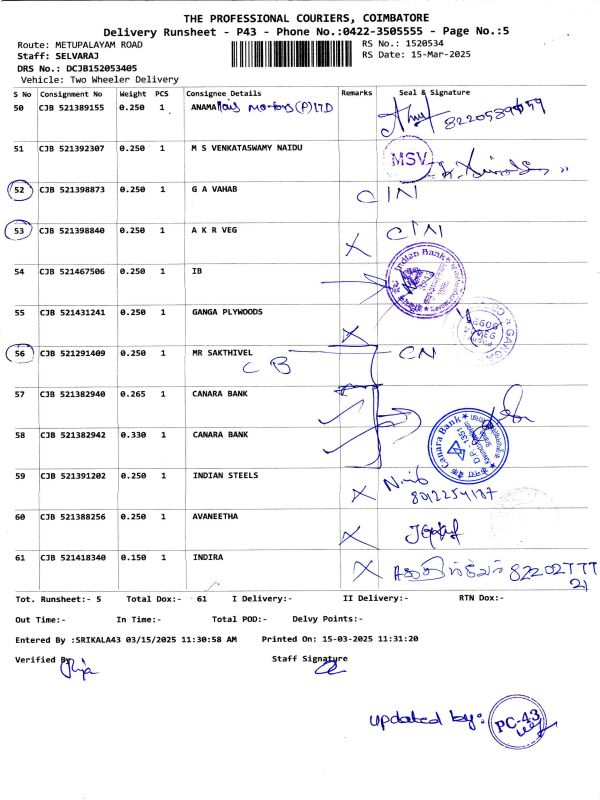 THE PROFESSIONAL COURIERS, COIMBATORE
Delivery Runsheet - P43 - Phone No.:0422-3505555 - Page No.:5
Route: METUPALAYAM ROAD RS No.: 1520534
Staff: SELVARAJ RS Date: 15-Mar-2025
DRS No.: DCJB152053405
Vehicle: Two Wheeler Delivery
S No Consignment No Weight PCS Consignee Details Remarks Seal & Signature
50 CJB 521389155 0.250 1 ANAMAllais Motors (P) LTD
51 CJB 521392307 0.250 1 M S VENKATASWAMY NAIDU MSV
52 CJB 521398873 0.250 1 G A VAHAB CIN
53 CJB 521398840 0.250 1 A K R VEG CIN
54 CJB 521467506 0.250 1 IB Indian Bank
55 CJB 521431241 0.250 1 GANGA PLYWOODS GANGA
56 CJB 521291409 0.250 1 MR SAKTHIVEL CB CN
57 CJB 521382940 0.265 1 CANARA BANK
58 CJB 521382942 0.330 1 CANARA BANK Canara Bank D.P. 1351
59 CJB 521391202 0.250 1 INDIAN STEELS
60 CJB 521388256 0.250 1 AVANEETHA
61 CJB 521418340 0.150 1 INDIRA 82202777
21
Tot. Runsheet:- 5 Total Dox:- 61 I Delivery:- II Delivery:- RTN Dox:-
Out Time:- In Time:- Total POD:- Delvy Points:-
Entered By :SRIKALA43 03/15/2025 11:30:58 AM Printed On: 15-03-2025 11:31:20
Verified By Staff Signature
updated by: PC-43